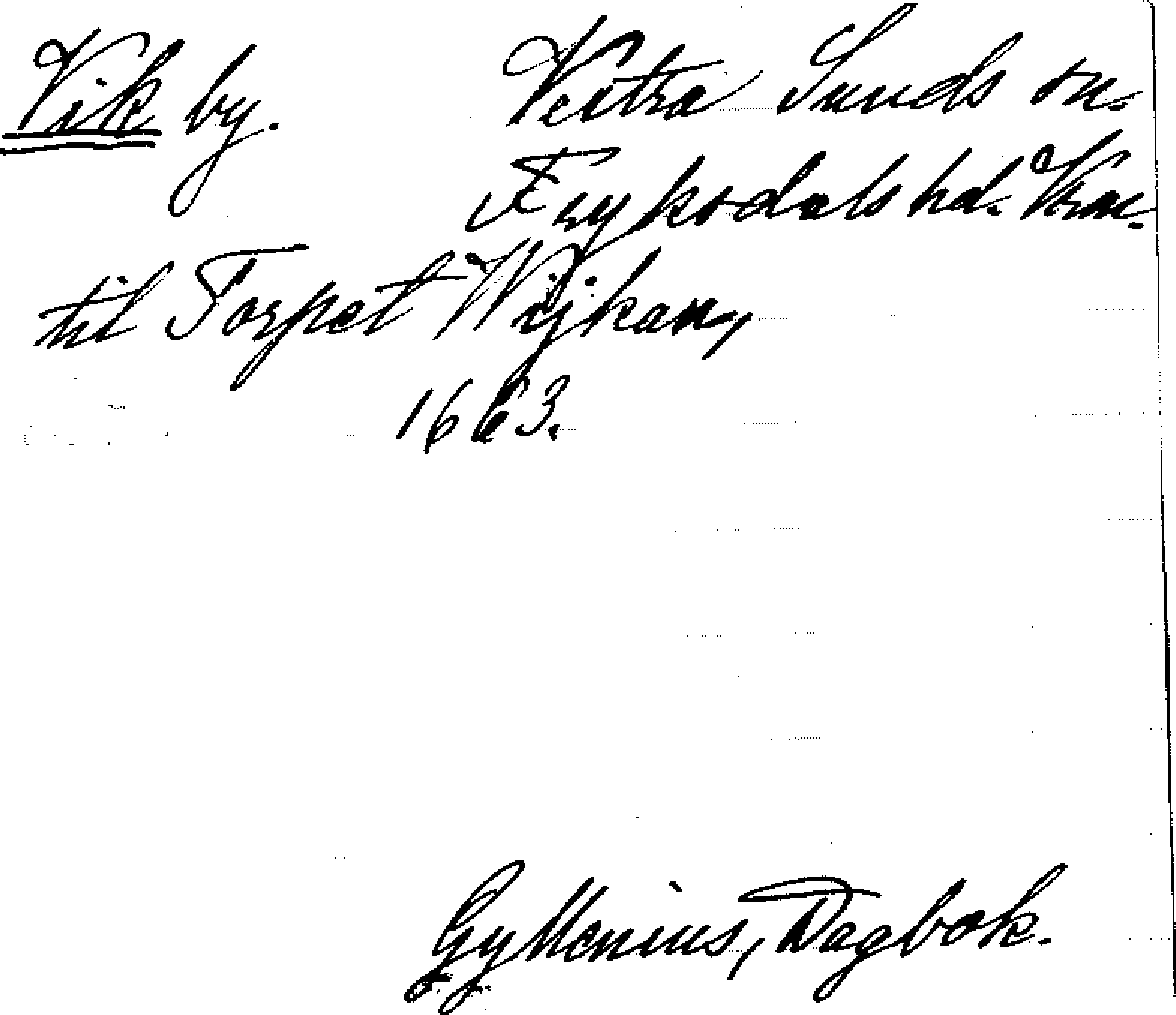 Vik by. Vestra Sunds sn.
Fryksdals hd. Vrm.
til Torpet Wijkan,
1663.
Gyllenius, Dagbok.